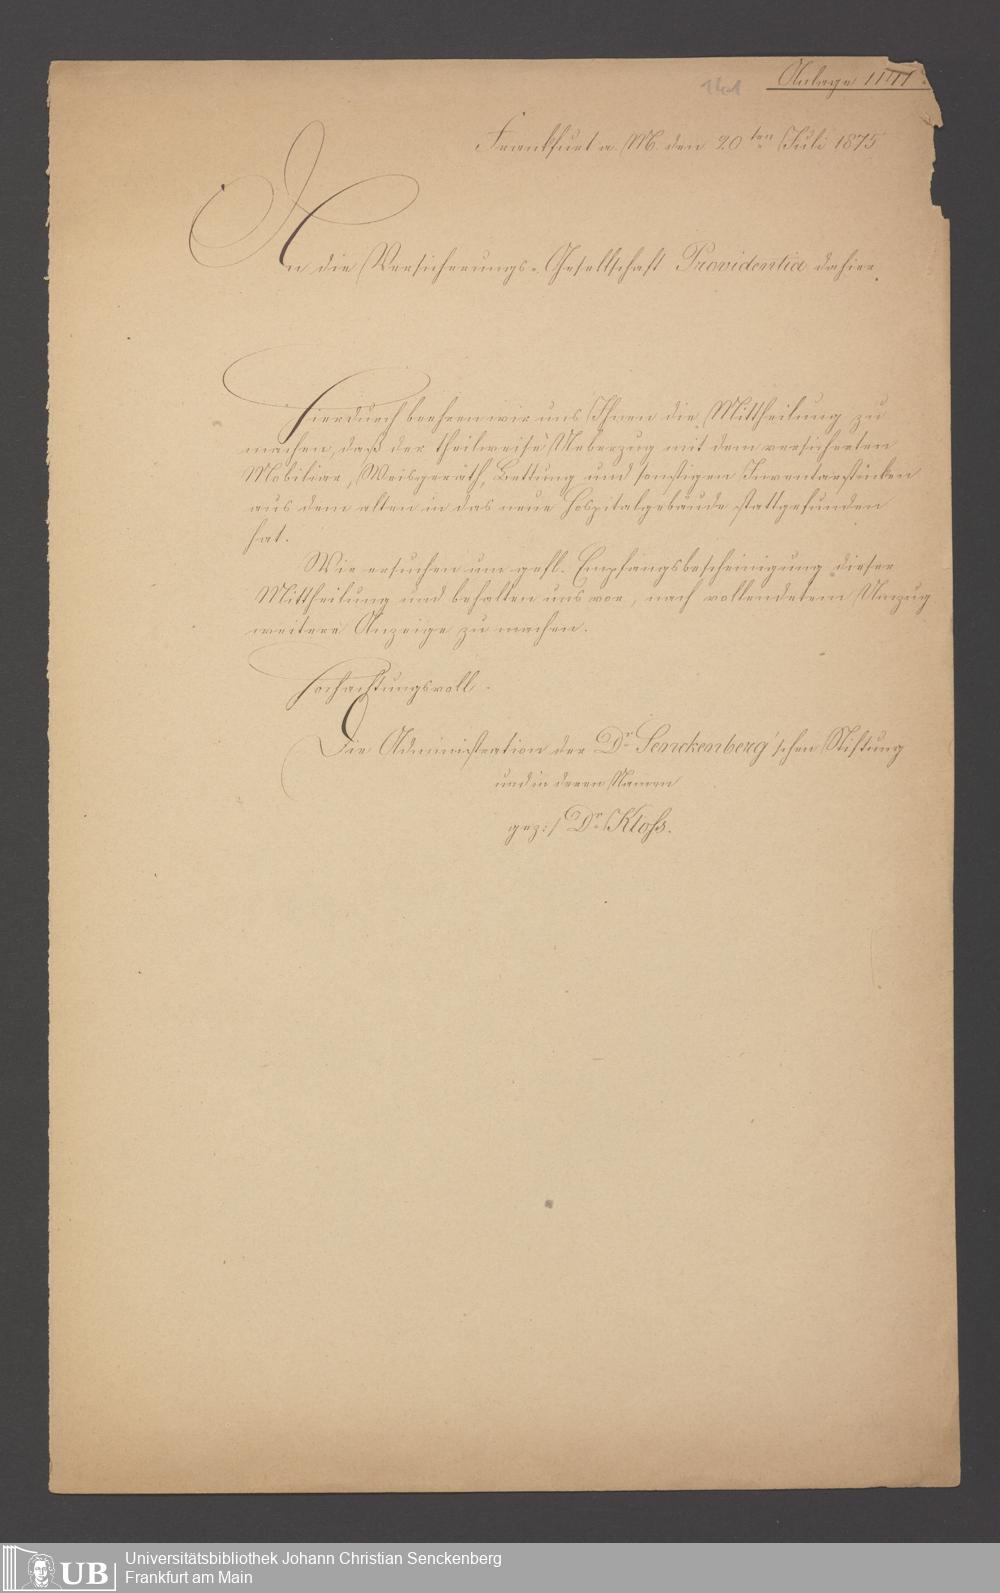 141
Anlage
Frankfurt a. M. den 20ten Juli 1875
An die Versicherungs-Gesellschaft Providentia dahier.
Hierdurch beehren wir uns Ihnen die Mittheilung zu
machen, daß der theilweise Ueberzug mit dem versicherten
Mobiliar, Weisgeräth, Bettung und sonstigen Inventarstücken
aus dem alten in das neue Hospitalgebäude stattgefunden
hat.
Wir ersuchen um gefl. Empfangsbescheinigung dieser
Mittheilung und behalten uns vor, nach vollendetem Umzug
weitere Anzeige zu machen.
Hochachtungsvoll.
Die Administration der Dr. Senckenberg'schen Stiftung
und in deren Namen
gez:/ Dr. Kloß.
UB
Universitätsbibliothek Johann Christian Senckenberg
Frankfurt am Main